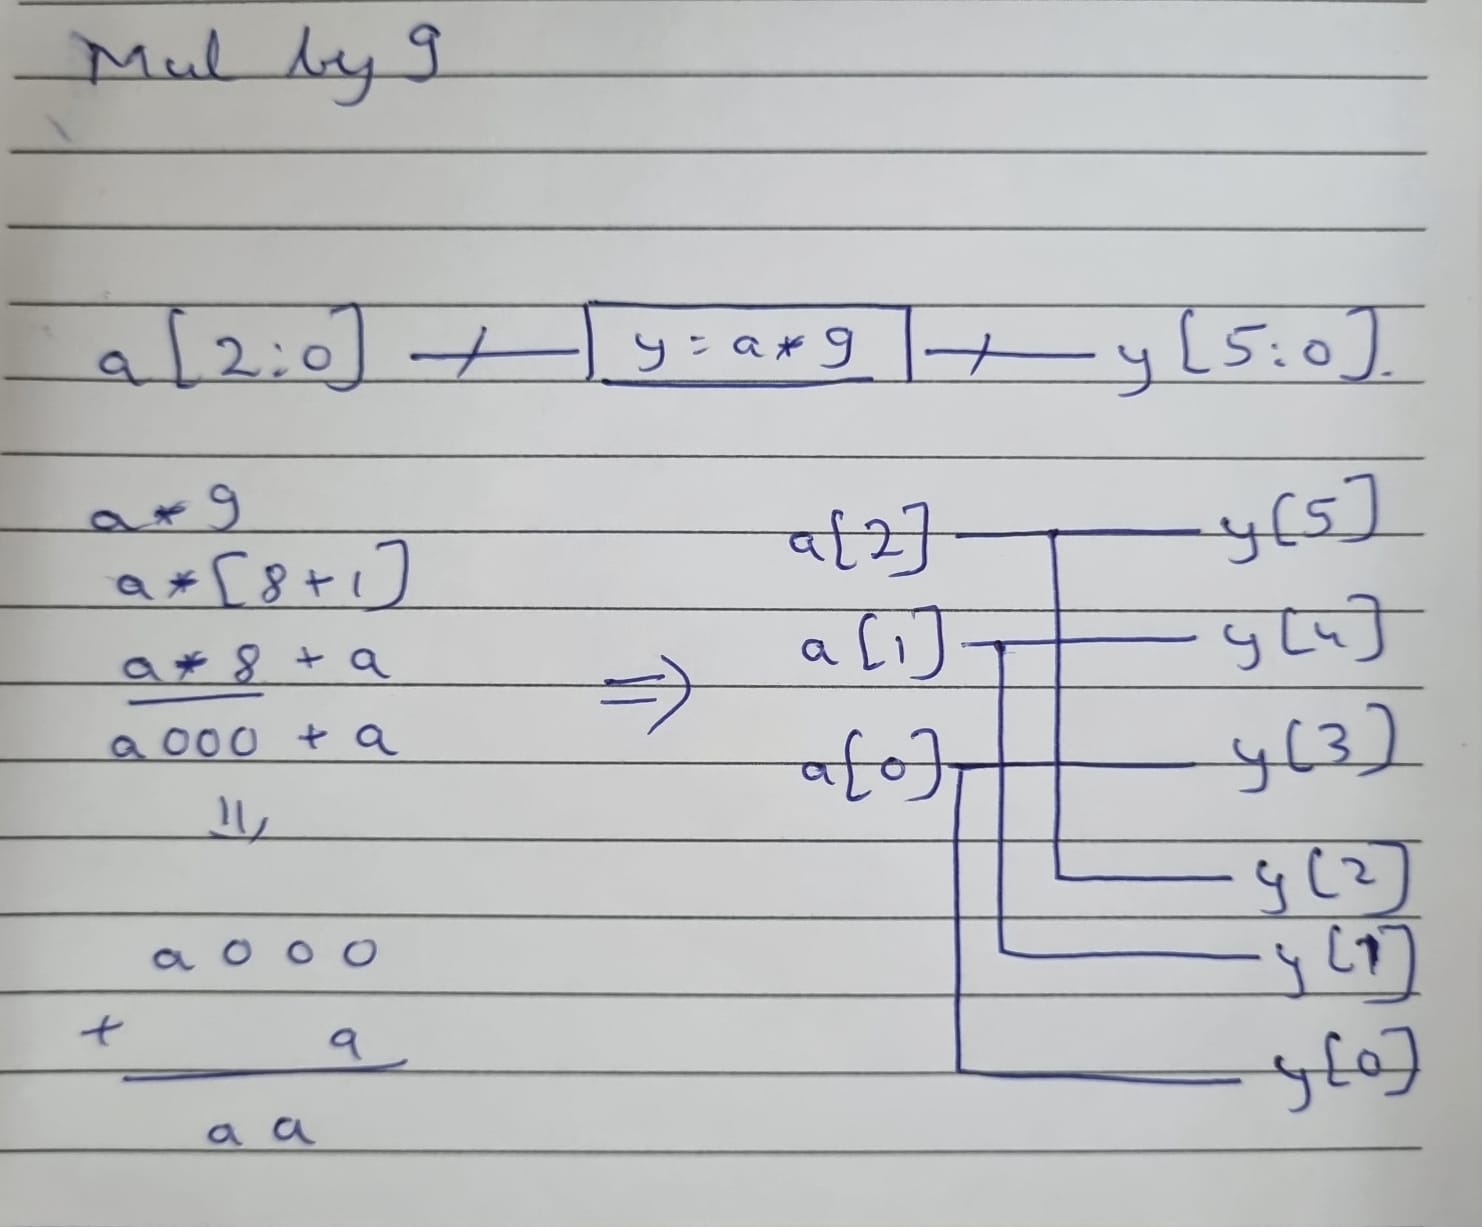 Mul by 9
a[2:0] y = a * 9 y[5:0].
a * 9
a * [8+1]
a * 8 + a
a000 + a
a000
+ a
a a
⇒
a[2] y[5]
a[1] y[4]
a[0] y[3]
y[2]
y[1]
y[0]